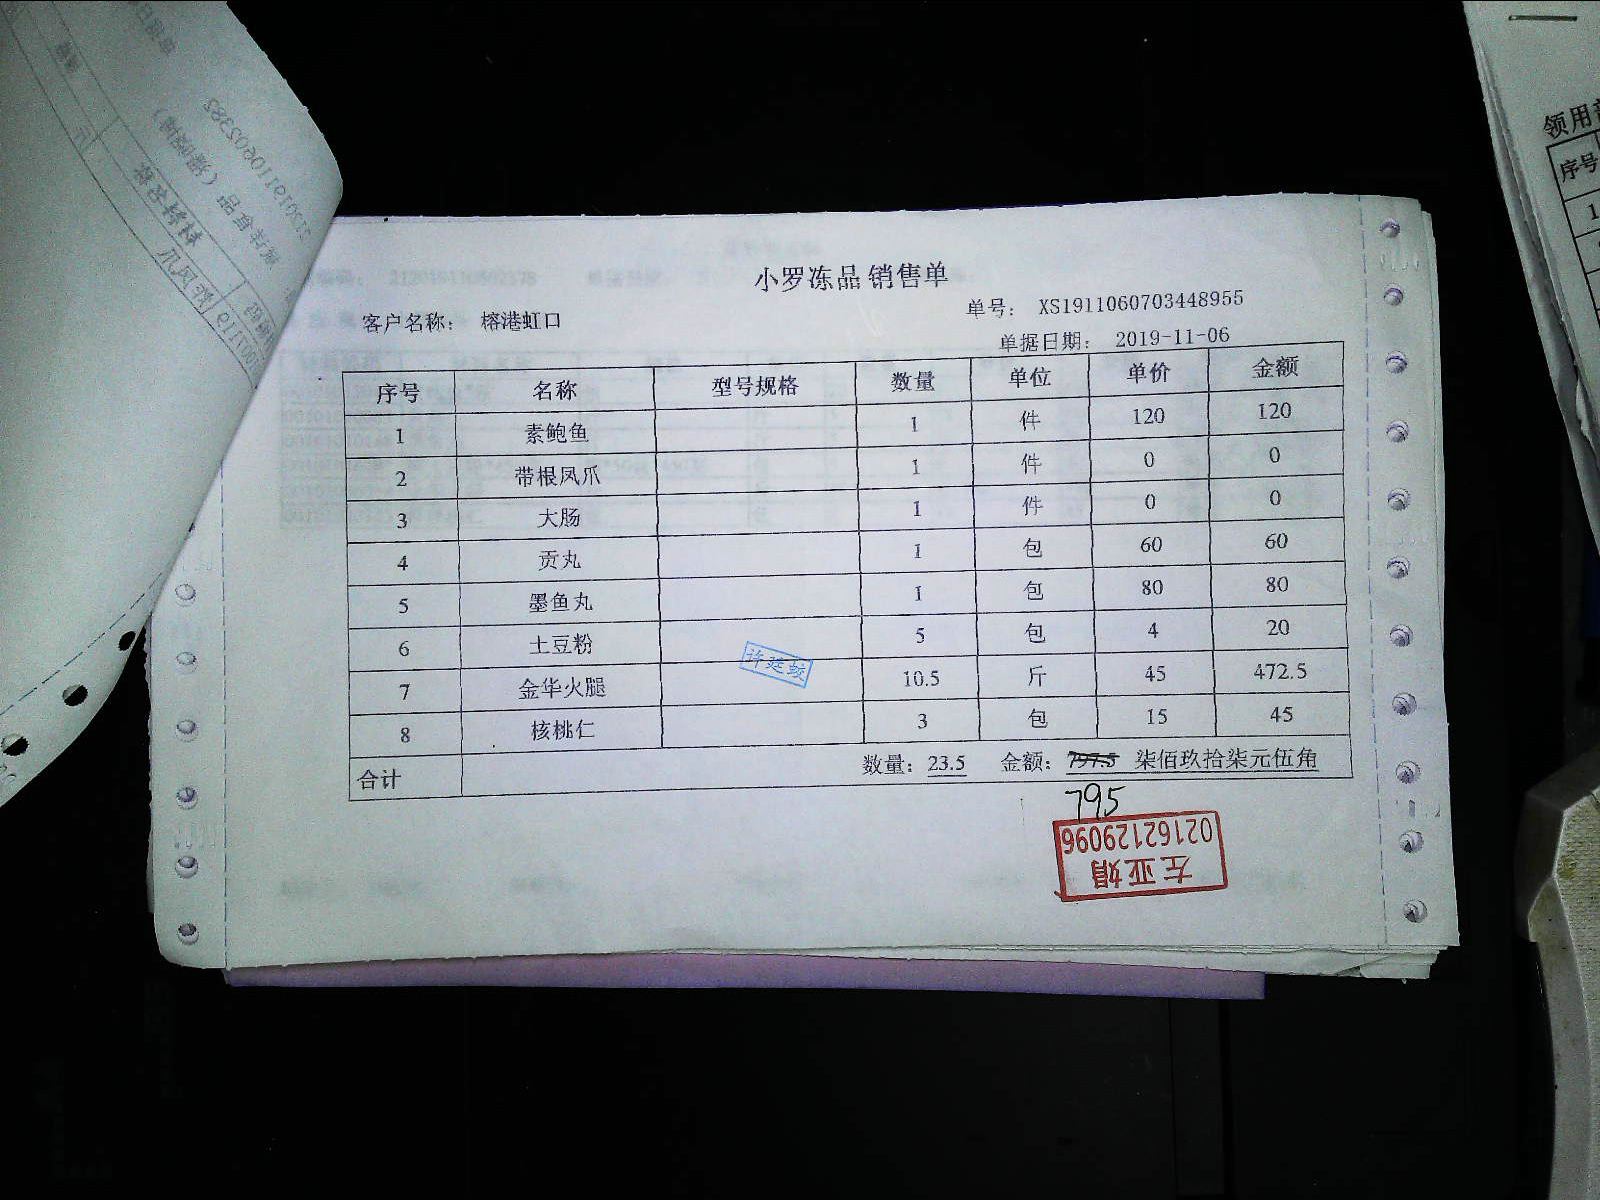 小罗冻品 销售单
单号： XS1911060703448955
客户名称： 榕港虹口
单据日期： 2019-11-06
序号 名称 型号规格 数量 单位 单价 金额
1 素鲍鱼 1 件 120 120
2 带根凤爪 1 件 0 0
3 大肠 1 件 0 0
4 贡丸 1 包 60 60
5 墨鱼丸 1 包 80 80
6 土豆粉 5 包 4 20
7 金华火腿 10.5 斤 45 472.5
8 核桃仁 3 包 15 45
许廷蛟
合计 数量：23.5 金额：797.5 柒佰玖拾柒元伍角
795
左亚娟
02162129096
领用
序号
1